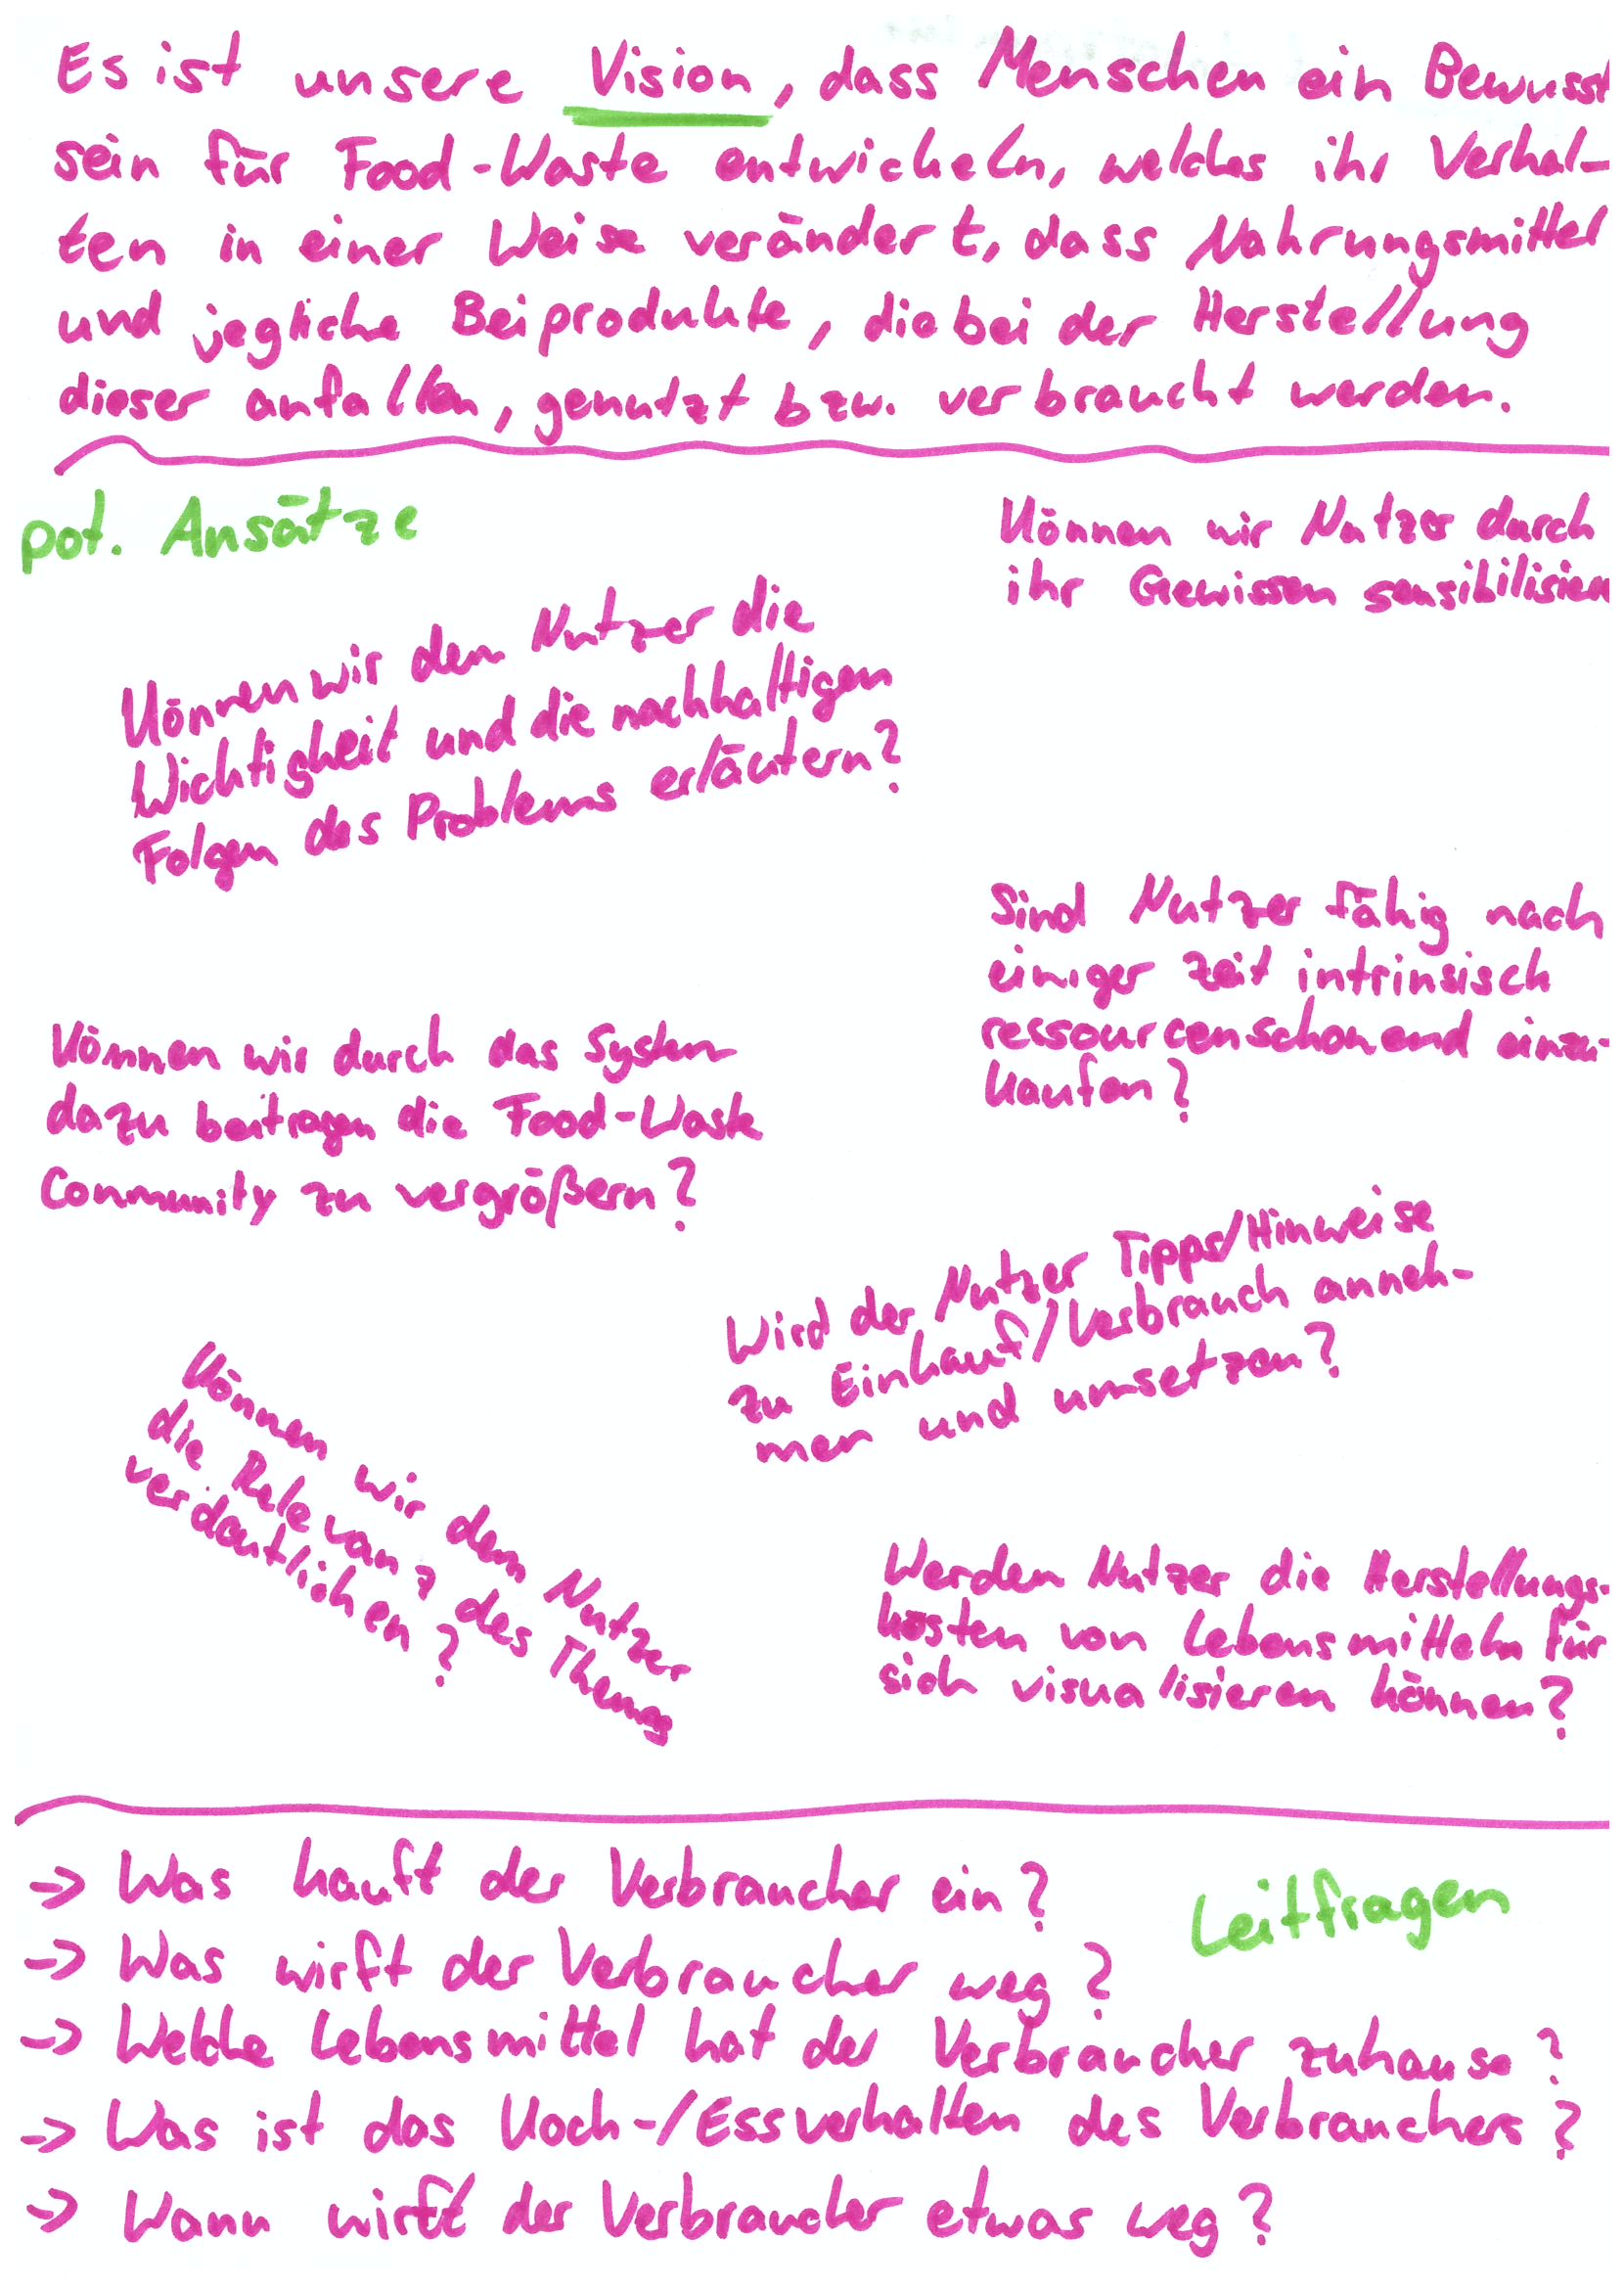 Es ist unsere Vision, dass Menschen ein Bewusst
sein für Food-Waste entwickeln, welches ihr Verhal-
ten in einer Weise verändert, dass Nahrungsmittel
und jegliche Beiprodukte, die bei der Herstellung
dieser anfallen, genutzt bzw. verbraucht werden.
pot. Ansätze
Können wir Nutzer durch
ihr Gewissen sensibilisieren
Können wir dem Nutzer die
Wichtigkeit und die nachhaltigen
Folgen des Problems erläutern?
Sind Nutzer fähig nach
einiger Zeit intrinsisch
ressourcenschonend einzu-
kaufen?
Können wir durch das System
dazu beitragen die Food-Waste
Community zu vergrößern?
Wird der Nutzer Tipps/Hinweise
zu Einkauf/Verbrauch anneh-
men und umsetzen?
Können wir dem Nutzer
die Relevanz des Themas
verdeutlichen?
Werden Nutzer die Herstellungs-
kosten von Lebensmitteln für
sich visualisieren können?
-> Was kauft der Verbraucher ein?
Leitfragen
-> Was wirft der Verbraucher weg?
-> Welche Lebensmittel hat der Verbraucher zuhause?
-> Was ist das Koch-/Essverhalten des Verbrauchers?
-> Wann wirft der Verbraucher etwas weg?